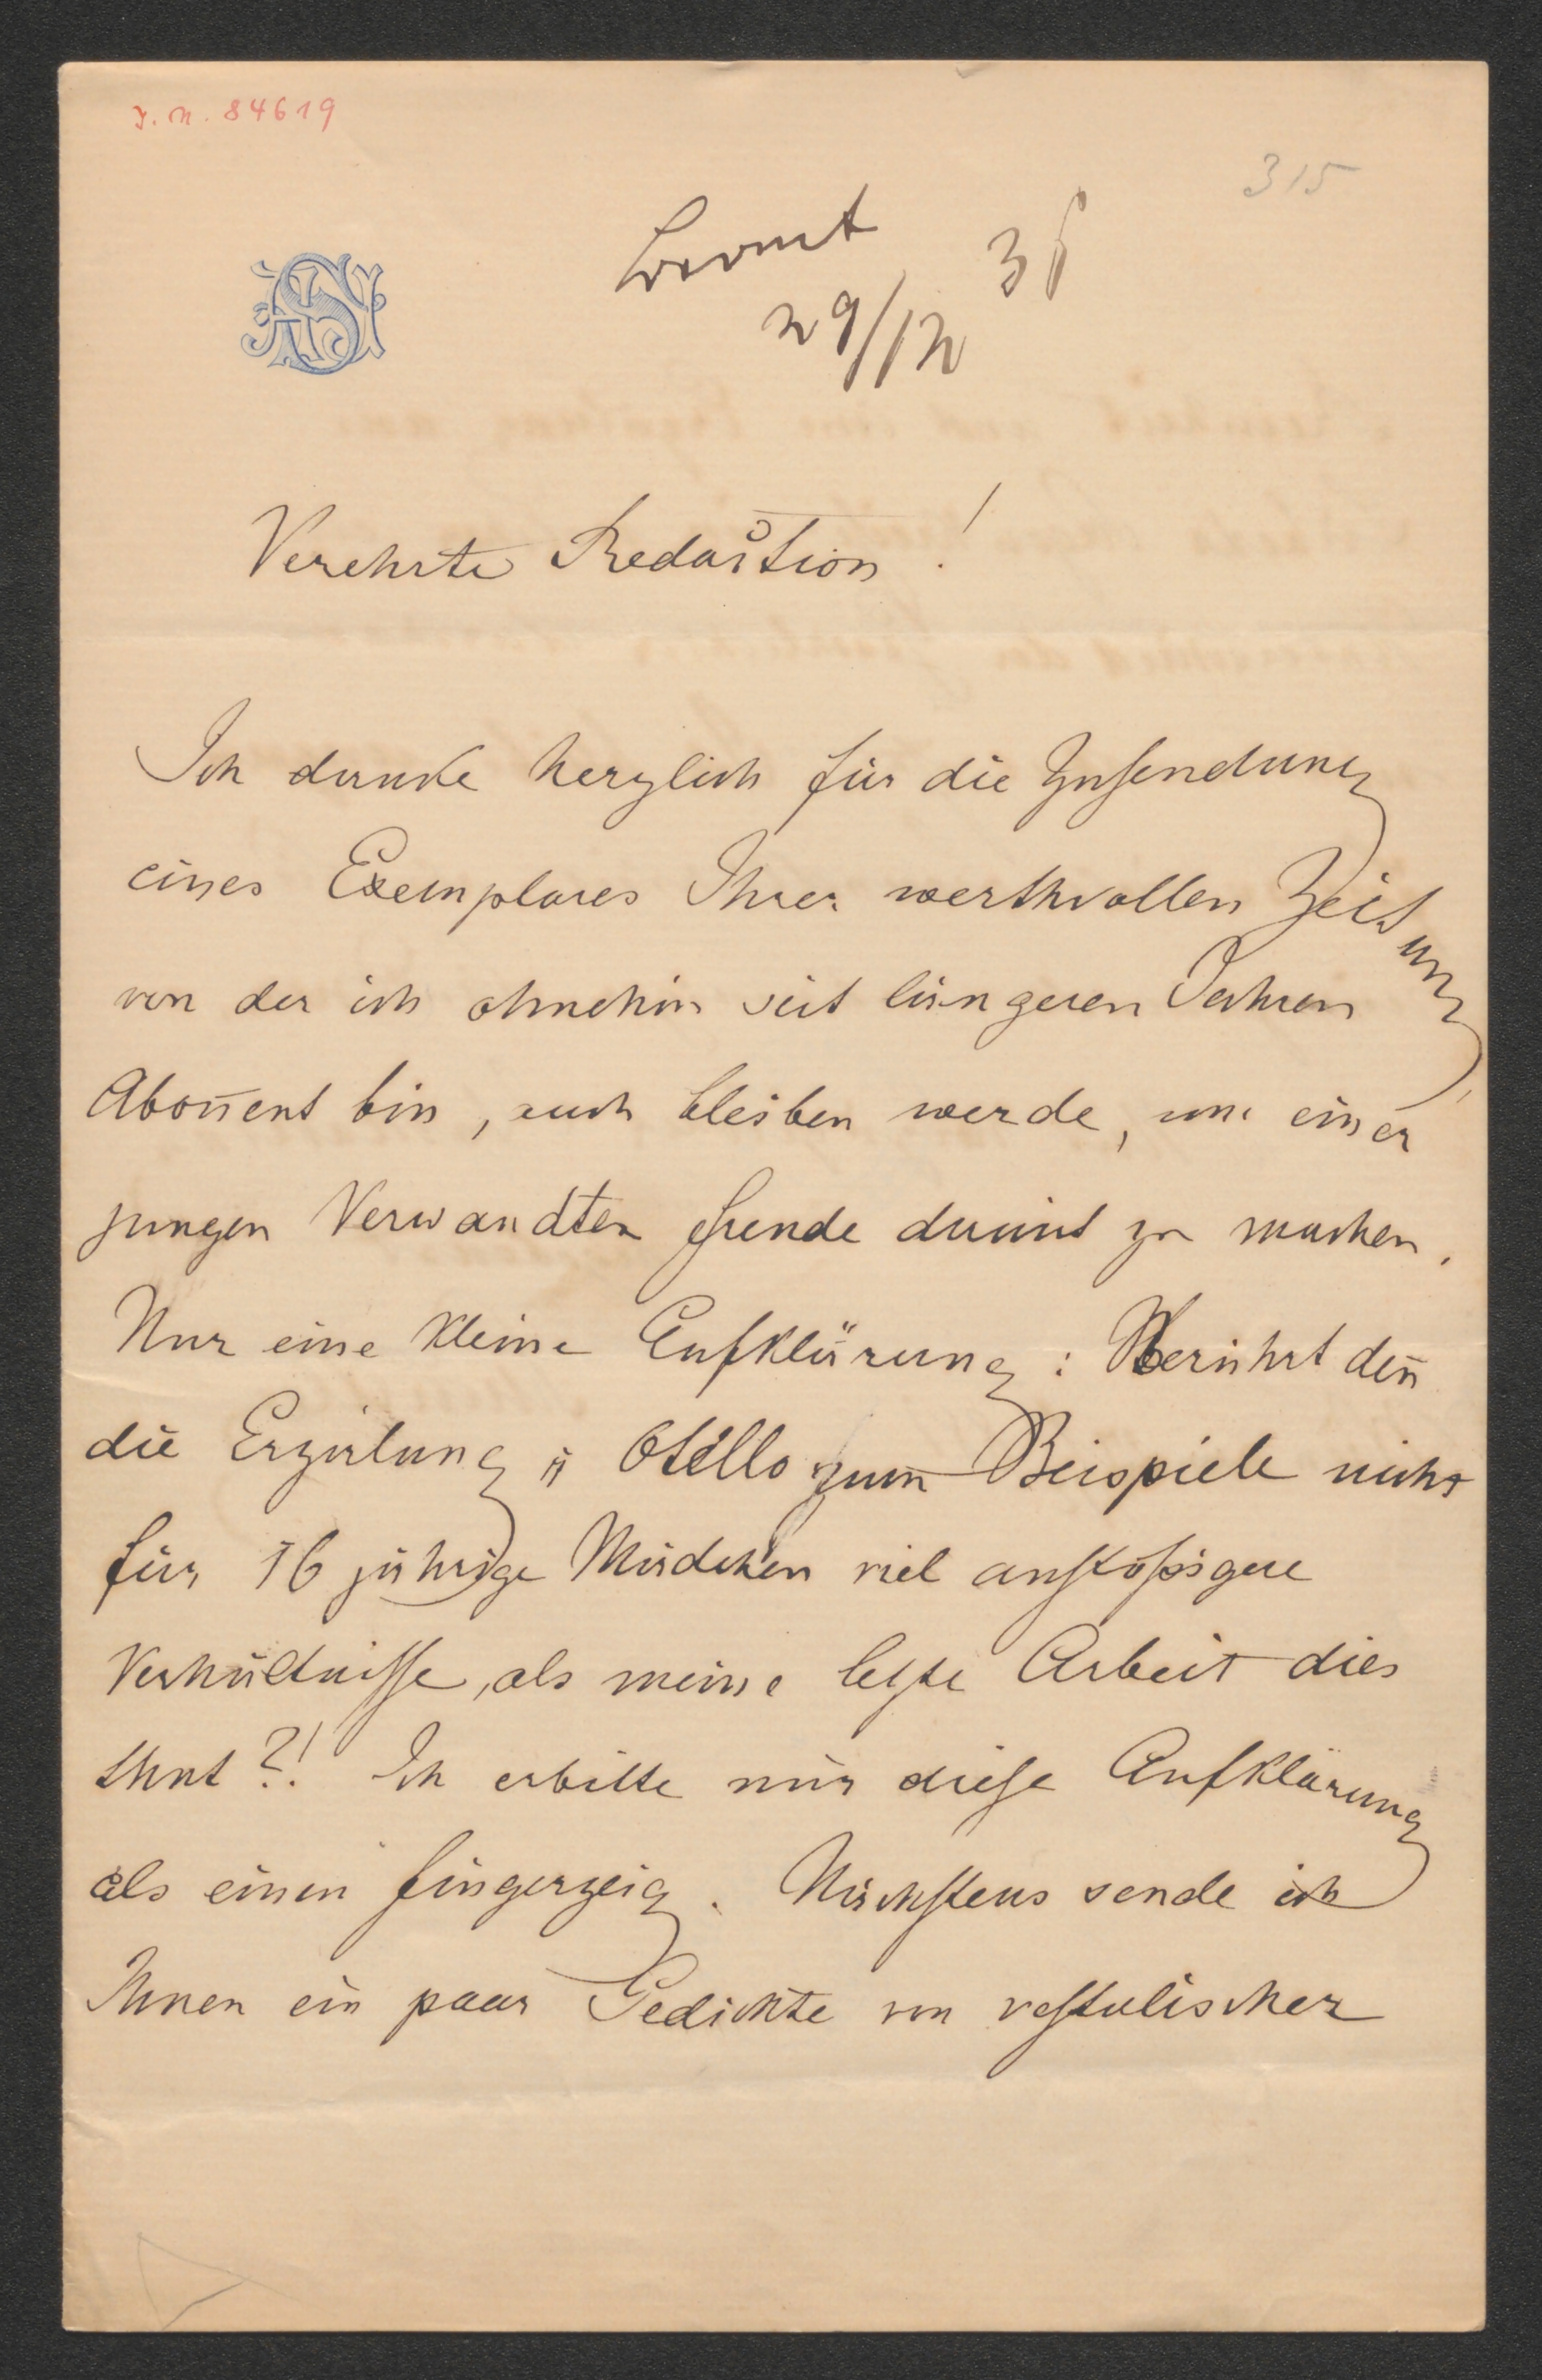 J. N. 84619
315
29/12
Verehrte Redaktion!
Ich danke herzlich für die Zusendung
eines Exemplares Ihrer werthvollen Zeitung,
von der ich ohnehin seit längeren Jahren
Abon̄ent bin, auch bleiben werde, um einer
jungen Verwandten Freude damit zu machen.
Nur eine kleine Aufklärung: Berührt den̄
die Erzälung Otello zum Beispiele nicht
für 16 jährige Mädchen viel anstößigere
Verhältnisse, als meine letzte Arbeit dies
thut?! Ich erbitte mir diese Aufklärung
als einen Fingerzeig. Nächstens sende ich
Ihnen ein paar Gedichte von vestalischer